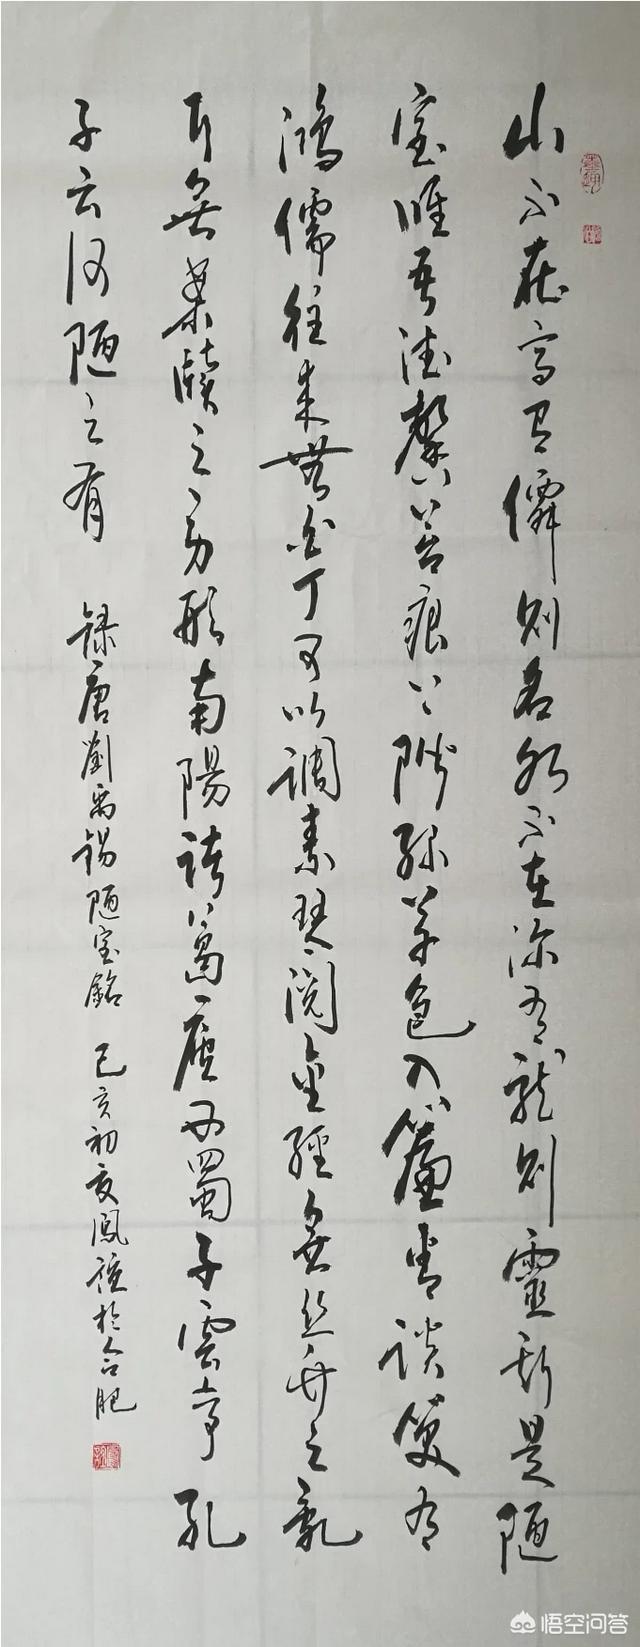 山不在高有僊則名水不在深有龍則靈斯是陋
室唯吾德馨苔痕上階綠草色入簾青談笑有
鴻儒往來無白丁可以調素琴閱金經無絲竹之亂
耳無案牘之勞形南陽諸葛廬西蜀子雲亭孔
子云何陋之有 錄唐劉禹錫陋室銘 己亥初夏鳳於合肥
悟空问答